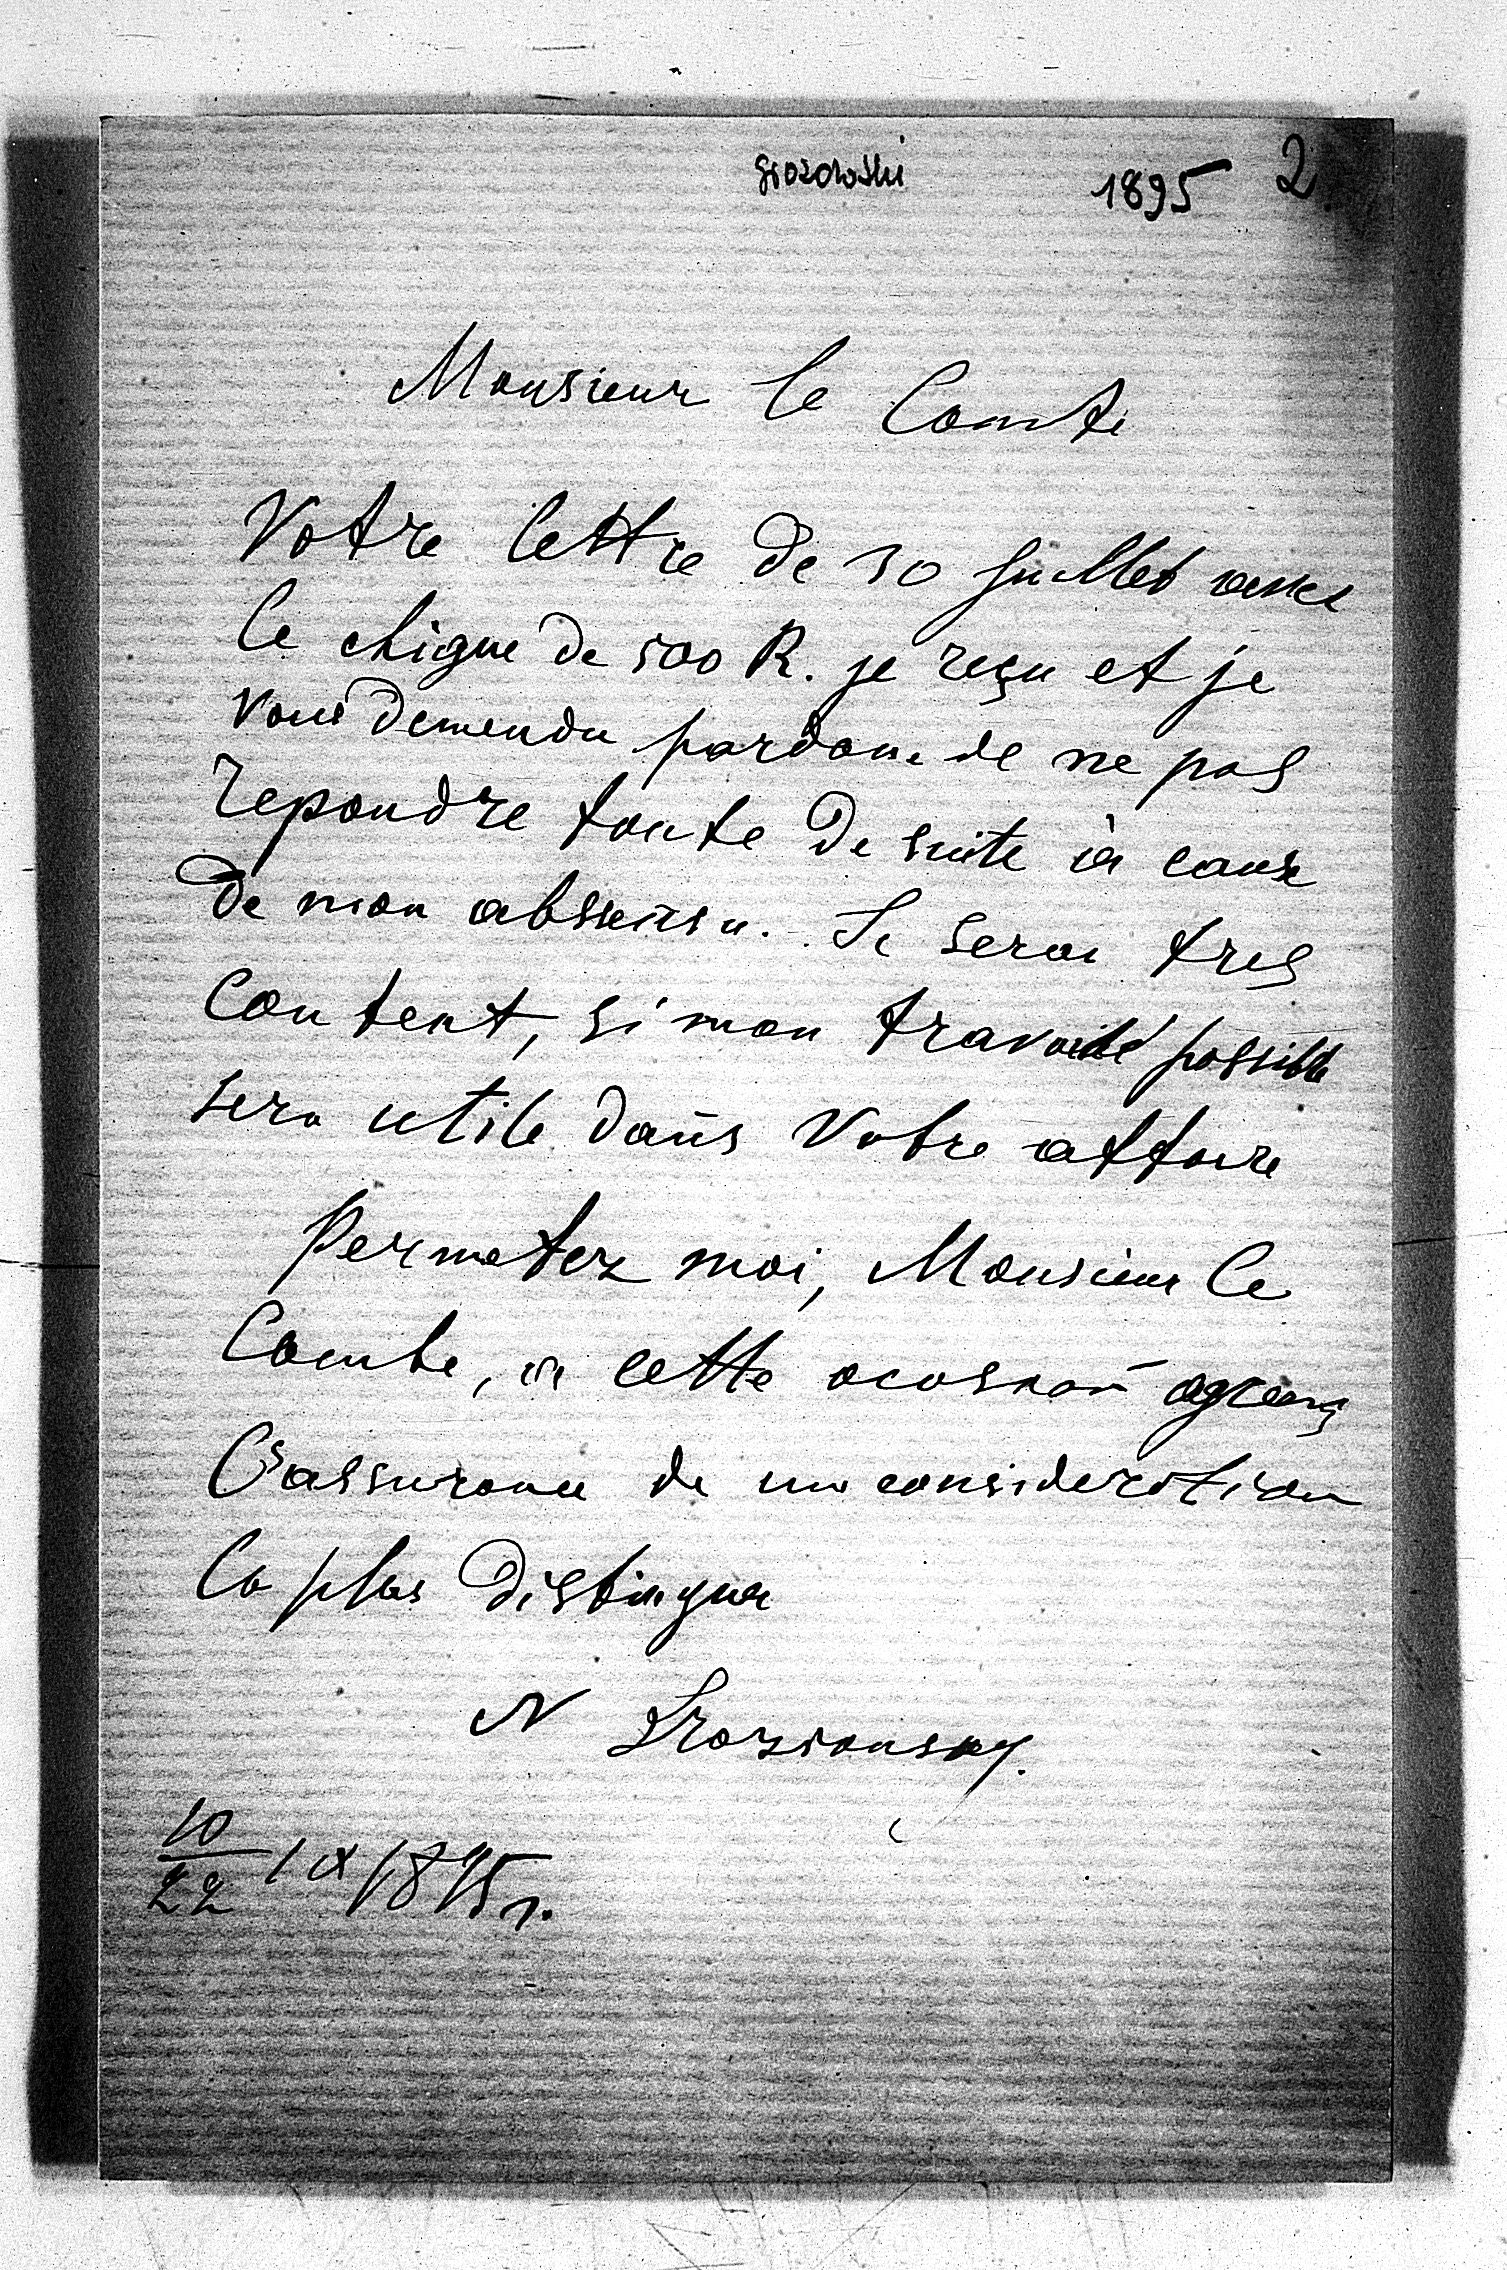 1895 2
Monsieur le Comte
Votre lettre de 30 Juillet avec
le chique de 500 R. je reçu et je
Vous demende pardon de ne pas
repondre toute de suite à cause
de mon abssense. Je serai tres
content, si mon travaile possible
sera utile dans Votre affaire
Permetez moi, Monsieur le
Comte, a cette ocasion agreans
l'assurance de ma consideration
la plus distingue
N
10/22 IX 1895 г.